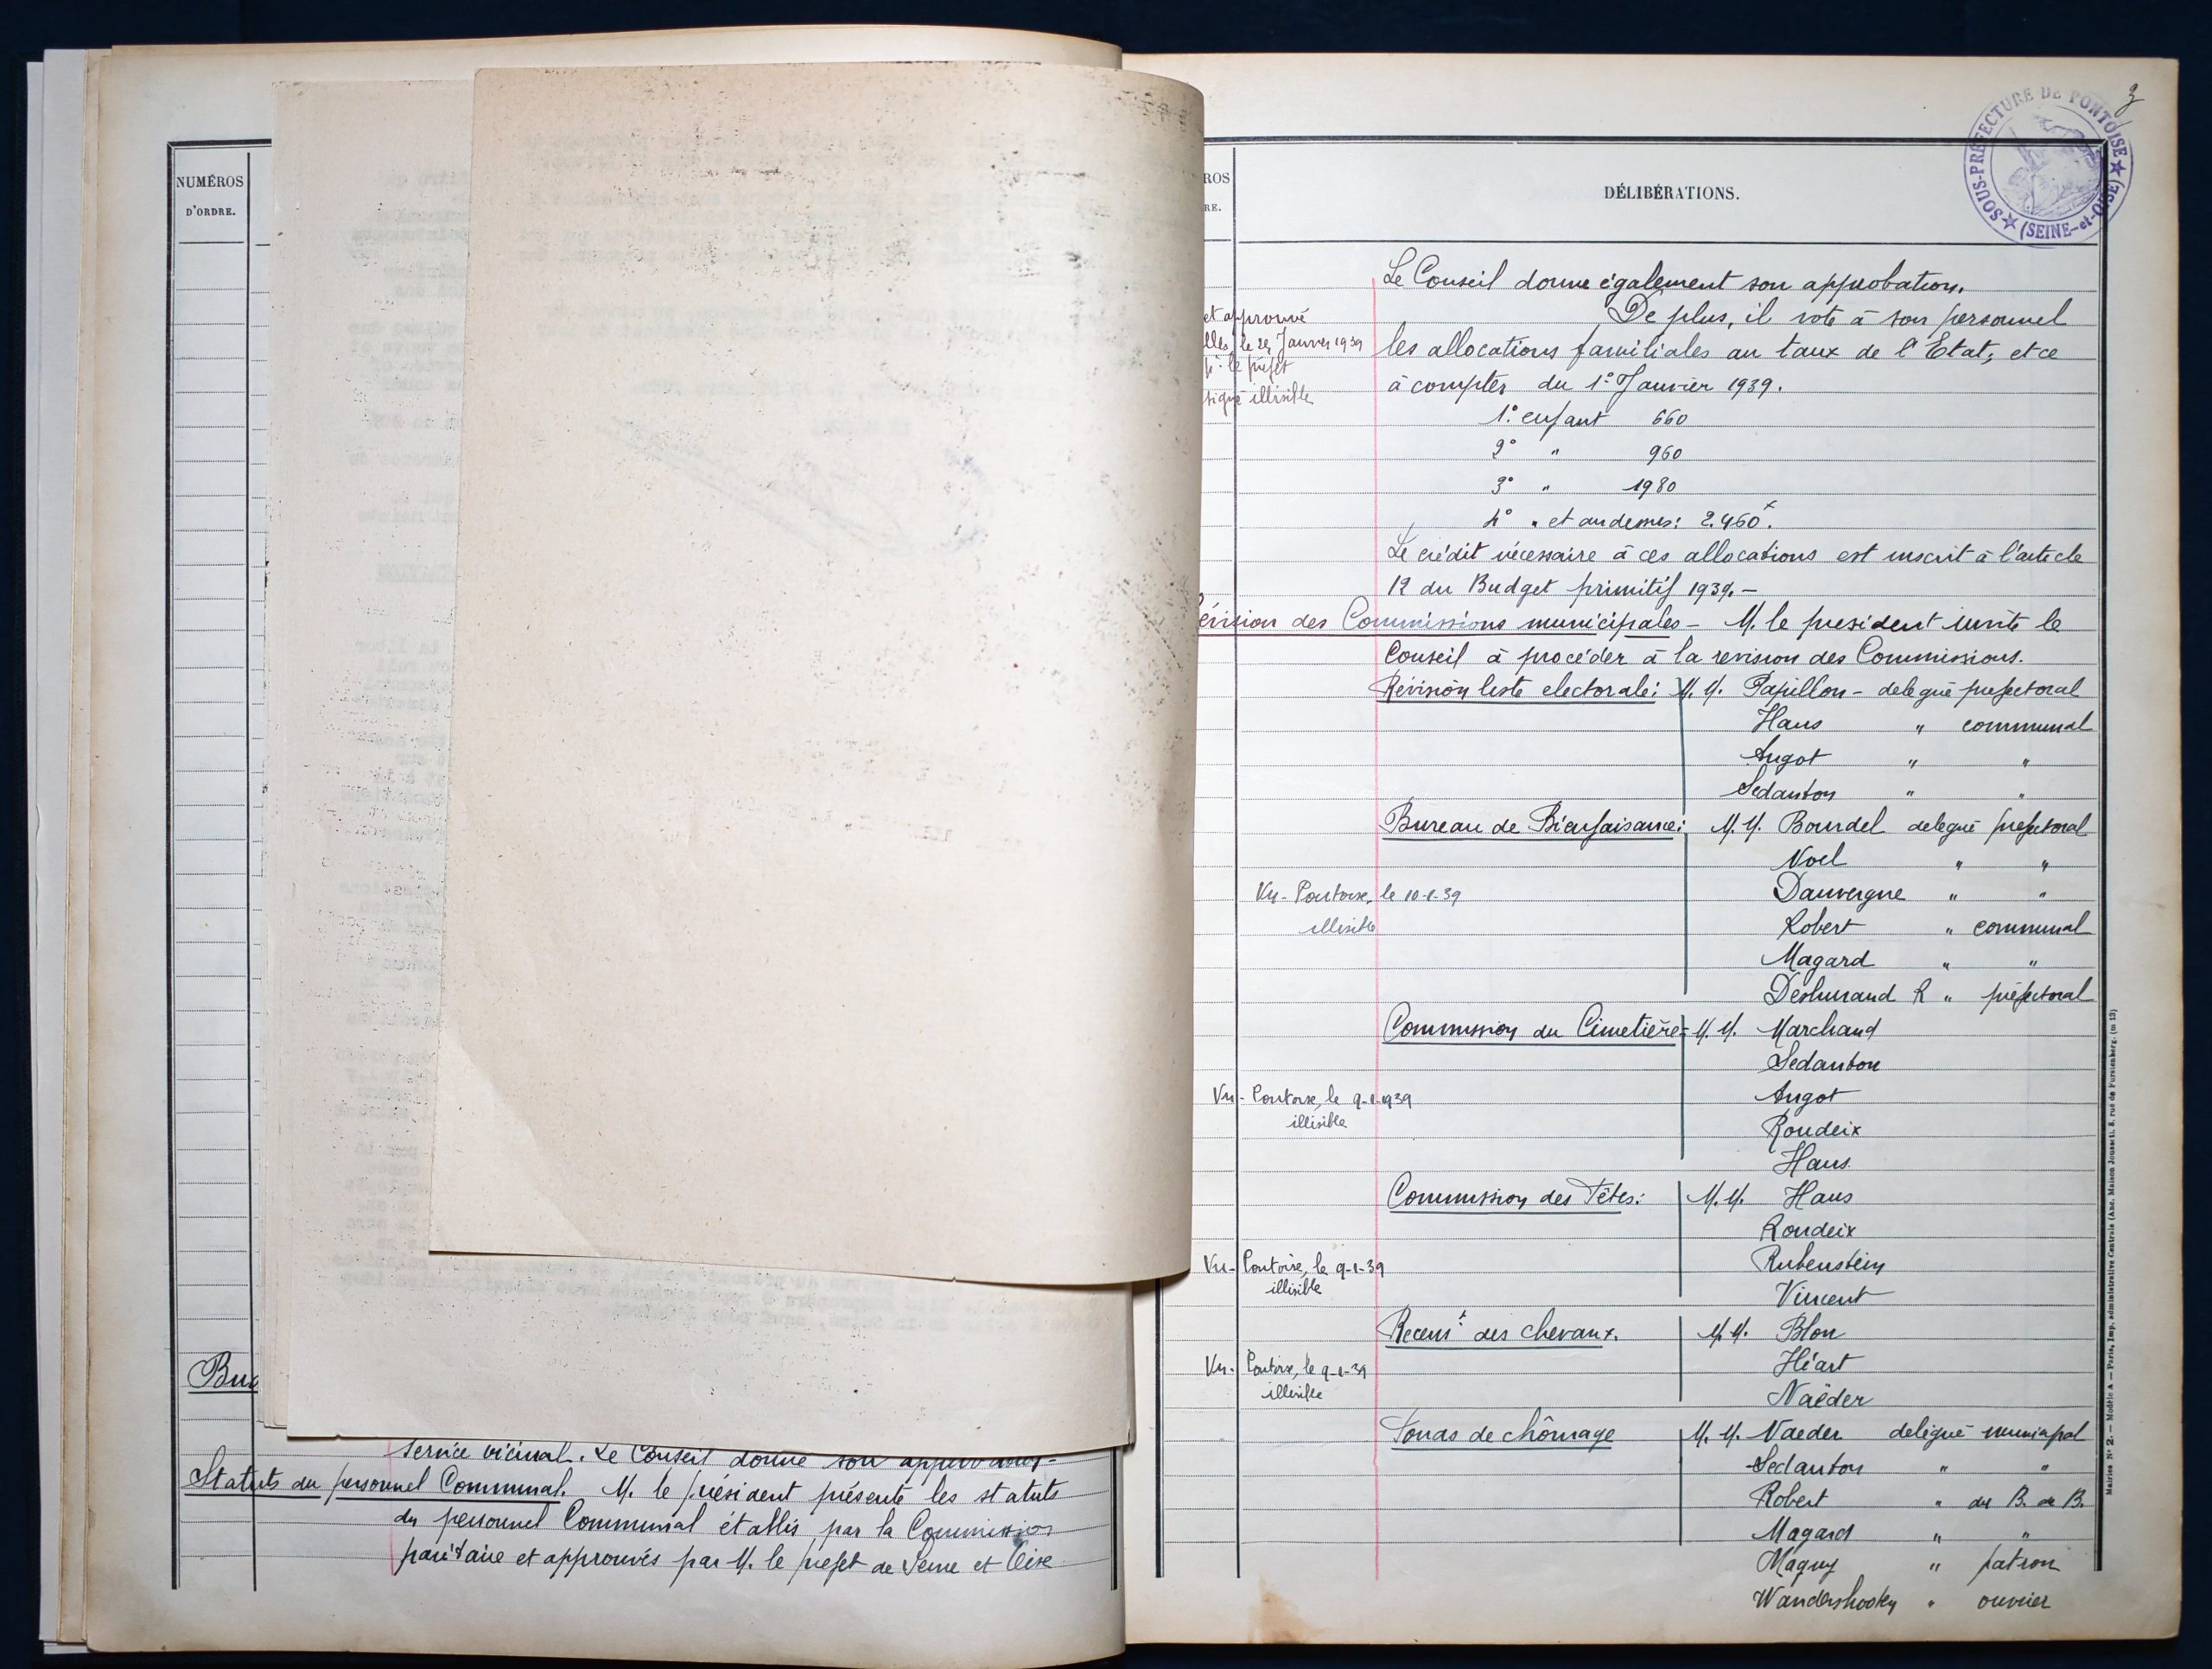 NUMÉROS
D'ORDRE.
Bud
service vicinal. Le Conseil donne son
Statuts du personnel Communal. M. le président présente les statuts
du personnel Communal établis par la Commission
paritaire et approuvés par M. le préfet de Seine et Oise
3
SOUS-PRÉFECTURE DE PONTOISE
(SEINE-et-OISE)
ROS
RE.
DÉLIBÉRATIONS.
Le Conseil donne également son approbation.
De plus, il vote à son personnel
les allocations familiales au taux de l'Etat, et ce
à compter du 1° Janvier 1939.
1° enfant 660
2° " 960
3° " 1980
4° " et au dessus: 2.460
Le crédit nécessaire à ces allocations est inscrit à l'article
12 du Budget primitif 1939.-
et approuvé
lles, le 24 Janvier 1939
le préfet
signé illisible
évision des Commissions municipales - M. le president invite le
Conseil à procéder à la revision des Commissions.
Révision liste electorale: M.M. Papillon - delegué prefectoral
Haus " communal
Angot " "
Sedanton " "
Bureau de Bienfaisance: M.M. Bourdel delegué prefectoral
Noel " "
Dauvergne " "
Robert " communal
Magard " "
R " préfectoral
Vu - Pontoise, le 10-1-39
illisible
Commission du Cimetière: M.M. Marchand
Sedanton
Angot
Roudeix
Haus
Vu - Pontoise, le 9-1-1939
illisible
Commission des Fêtes: M.M. Haus
Roudeix
Rubenstein
Vincent
Vu - Pontoise, le 9-1-39
illisible
Recenst des chevaux. M.M. Blon
Héart
Naëder
Vu - Pontoise, le 9-1-39
illisible
Fonds de chômage M.M. Naeder delégué municipal
Sedanton " "
Robert " du B. de B.
Magard " "
Maguy " patron
Wandershooky " ouvrier
Mairies N° 2. — Modèle A — Paris, Imp. administrative Centrale (Anc. Maison Jousset), 8, rue de Furstenberg. (m 13)